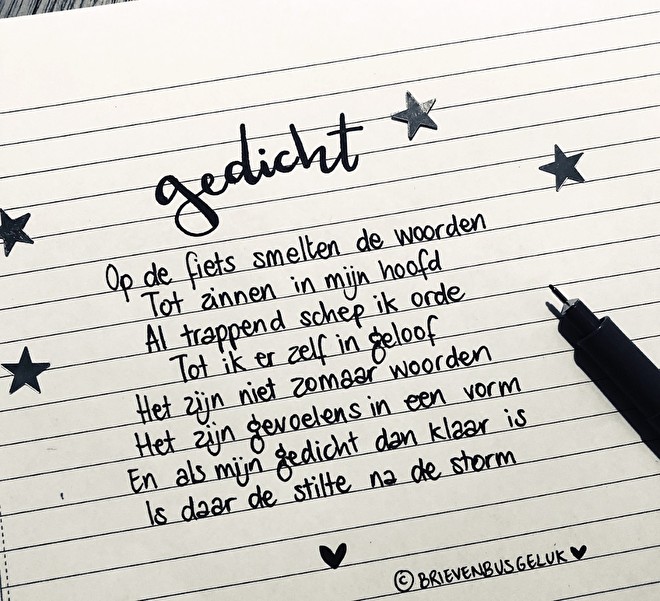 gedicht
Op de fiets smelten de woorden
Tot zinnen in mijn hoofd
Al trappend schep ik orde
Tot ik er zelf in geloof
Het zijn niet zomaar woorden
Het zijn gevoelens in een vorm
En als mijn gedicht dan klaar is
Is daar de stilte na de storm
© BRIEVENBUSGELUK ♥